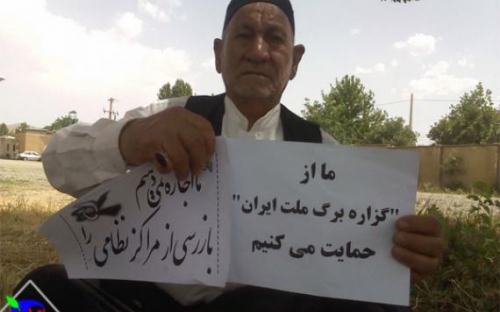 ما از
"گزاره برگ ملت ایران"
حمایت می کنیم
ما اجازه ی دهیم
بازرسی از مراکز نظامی را